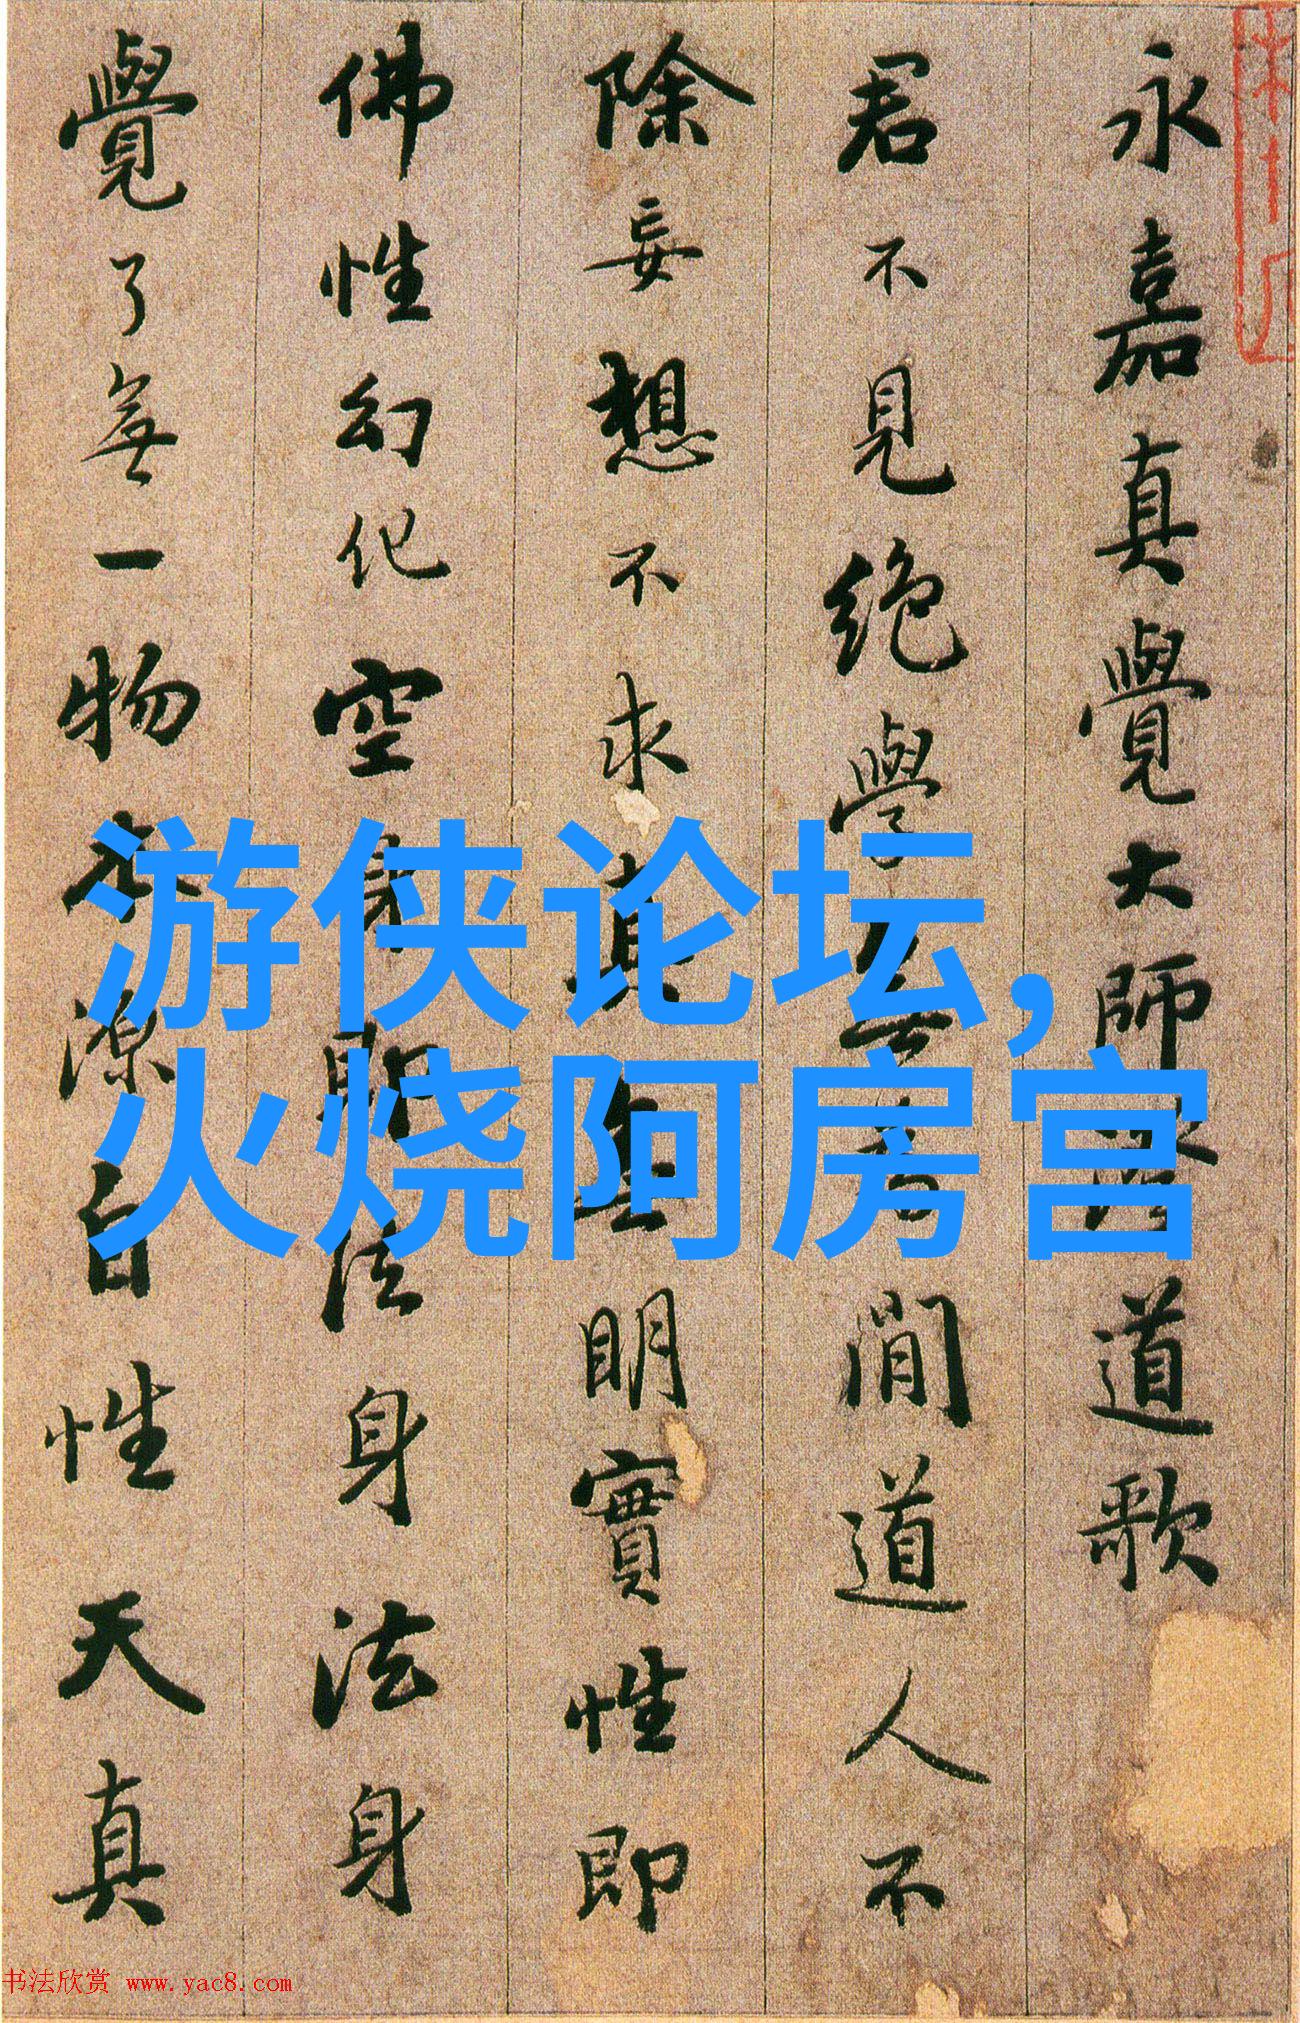 永嘉真覺大師道歌
君不見絕學閒道人不
除妄想不求真明實性即
佛性幻化空身即法身法身
覺了無一物本源自性天真
游侠论坛,
火烧阿房宫
书法欣赏 www.yac8.com